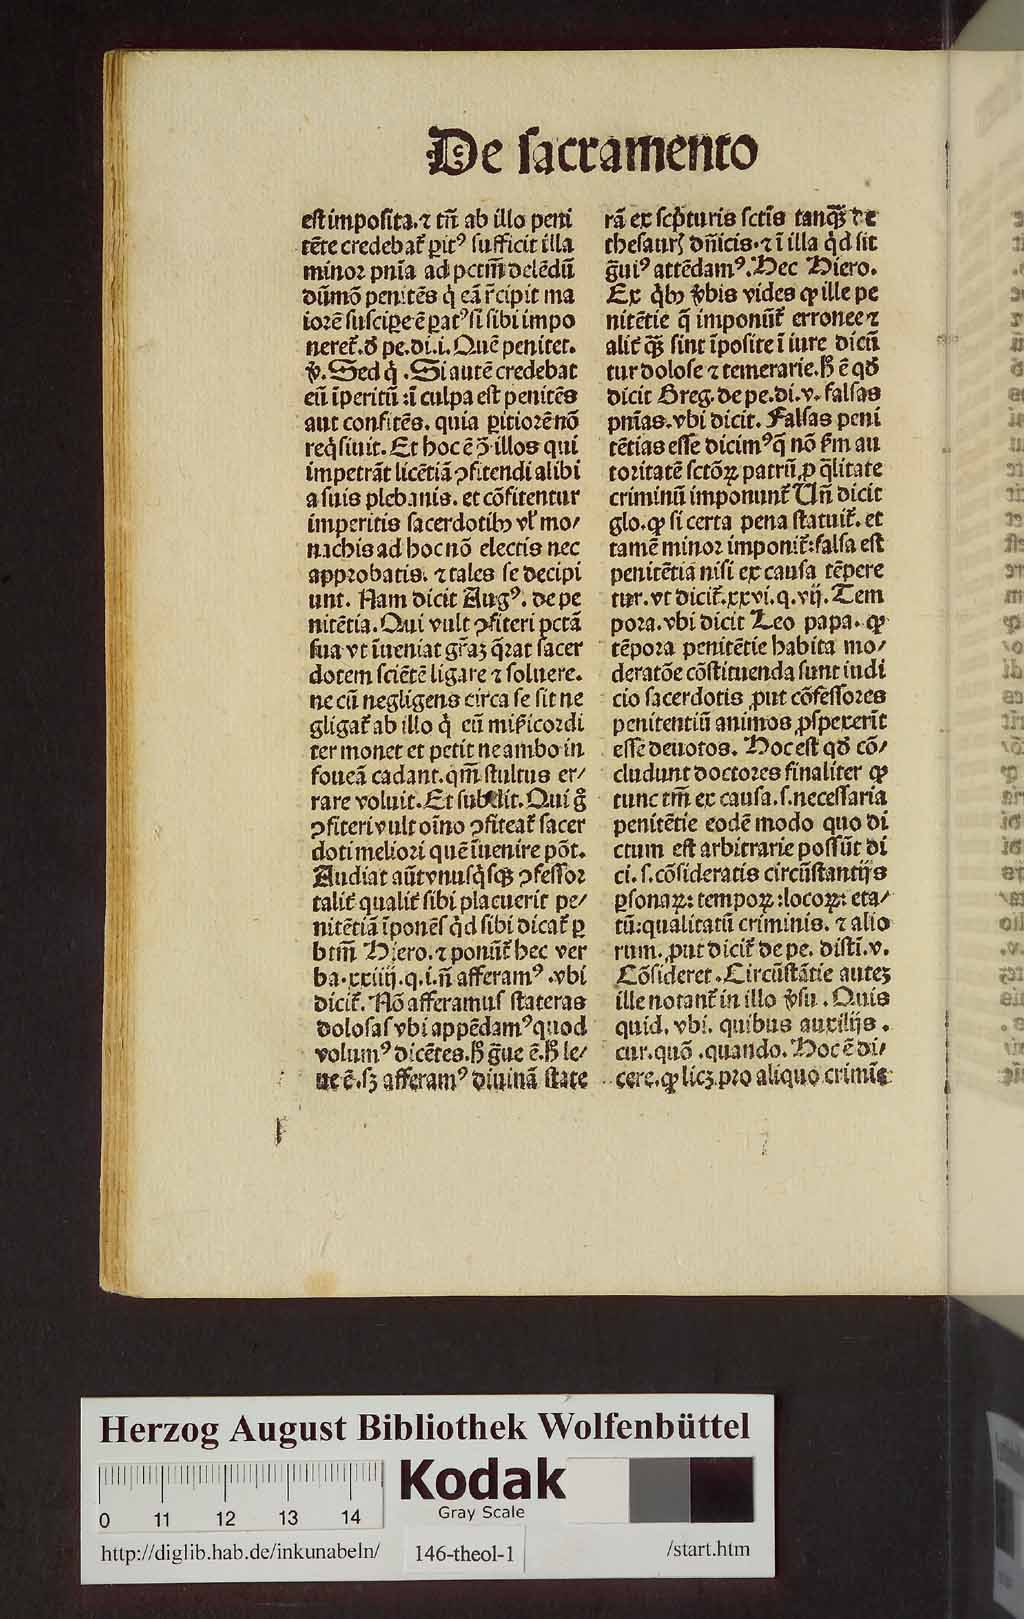 De sacramento
est imposita. ⁊ tn̄ ab illo peni
tēte credebat᷑ ꝑitꝰ sufficit illa
minor pnīa ad pctm̄ delēdū
dūmō penitēs q̇ eā r̄cipit ma
iorē suscipe·ē ꝑatꝰ si sibi impo
neret᷑. ď pe. di. i. Quē penitet.
v̄. Sed q̇. Si autē credebat
eū īperitū : ī culpa est penitēs
aut confitēs. quia ꝑitiorē nō
req̇siuit. Et hoc ē ↄ̄ illos qui
impetrāt licētiā ↄfitendi alibi
a suis plebanis. et cōfitentur
imperitis sacerdotibꝫ vl᷑ mo⸗
nachis ad hoc nō electis nec
approbatis. ⁊ tales se decipi
unt. Nam dicit Augꝰ. de pe
nitētia. Qui vult ↄfiteri pctā
sua vt īueniat gr̄aꝫ q̄rat sacer
dotem sciētē ligare ⁊ soluere.
ne cū negligens circa se sit ne
gligat᷑ ab illo q̇ eū mīs̄icordi
ter monet et petit ne ambo in
foueā cadant. qm̄ stultus er⸗
rare voluit. Et subdit. Qui g̊
ↄfiteri vult oīno ↄfiteat᷑ sacer
doti meliori quē īuenire pōt.
Audiat aūt vnusq̇sqꝫ ↄfessor
talit᷑ qualit᷑ sibi placuerit pe⸗
nitētiā īponēs q̇d sibi dicat᷑ ꝑ
btm̄ Hiero. ⁊ ponūt᷑ hec ver
ba. xxiiij. q. i. n̄ afferamꝰ. vbi
dicit᷑. Nō afferamus stateras
dolosas vbi appēdamꝰ quod
volumꝰ dicētes. h̄ g̃ue ē. h̄ le⸗
ue ē. sꝫ afferamꝰ diuinā state
rā ex scp̄turis sctīs tanqꝫ̄ de
thesaurꝫ dn̄icis. ⁊ ī illa q̇d sit
g̃uiꝰ attēdamꝰ. Hec Hiero.
Ex q̇bꝫ v̄bis vides ꝙ ille pe
nitētie q̄ imponūt᷑ erronee ⁊
alit᷑ qꝫ̄ sint īposite ī iure dicū
tur dolose ⁊ temerarie. h̄ ē qď
dicit Greg. de pe. di. v. falsas
pnīas. vbi dicit. Falsas peni
tētias esse dicimꝰ q̄ nō s̄m au
toritatē sctōꝝ patrū ꝓ q̄litate
criminū imponunt᷑. Un̄ dicit
glo. ꝙ si certa pena statuit᷑. et
tamē minor imponit᷑ : falsa est
penitētia nisi ex causa tēpere
tur. vt dicit᷑. xxvi. q. vij. Tem
pora. vbi dicit Leo papa. ꝙ
tēpora penitētie habita mo⸗
deratōe cōstituenda sunt iudi
cio sacerdotis ꝓut cōfessores
penitentiū animos ꝓspexerīt
esse deuotos. Hoc est qď cō⸗
cludunt doctores finaliter ꝙ
tunc tm̄ ex causa. s. necessaria
penitētie eodē modo quo di
ctum est arbitrarie possūt di
ci. s. cōsideratis circūstantijs
ꝑsonaꝝ : tempoꝝ : locoꝝ : eta⸗
tū : qualitatū criminis. ⁊ alio
rum. ꝓut dicit᷑ de pe. distī. v.
Cōsideret. Circūstātie auteꝫ
ille notant᷑ in illo v̄su. Quis
quid. vbi. quibus auxilijs.
cur. quō. quando. Hoc ē di⸗
cere. ꝙ licꝫ pro aliquo crimīe
Herzog August Bibliothek Wolfenbüttel
0 11 12 13 14
Kodak
Gray Scale
http://diglib.hab.de/inkunabeln/ 146-theol-1 /start.htm